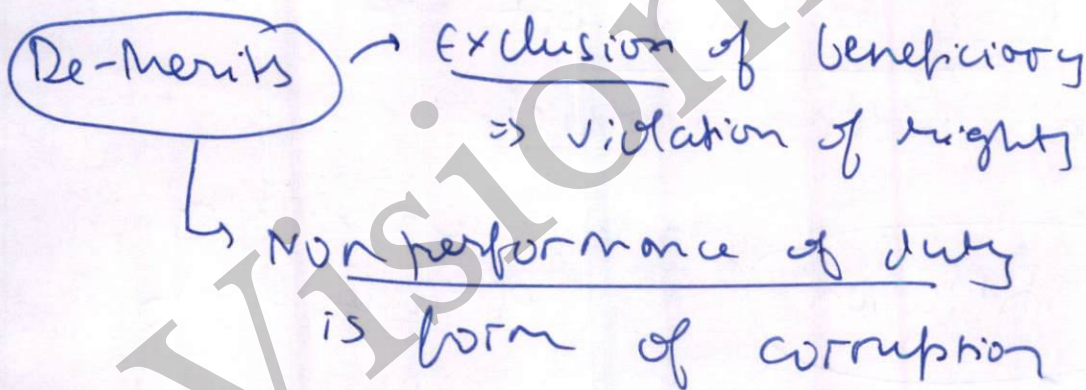 De-merits → Exclusion of beneficiary
⇒ violation of rights
↳ Non performance of duty
is form of corruption
Vision